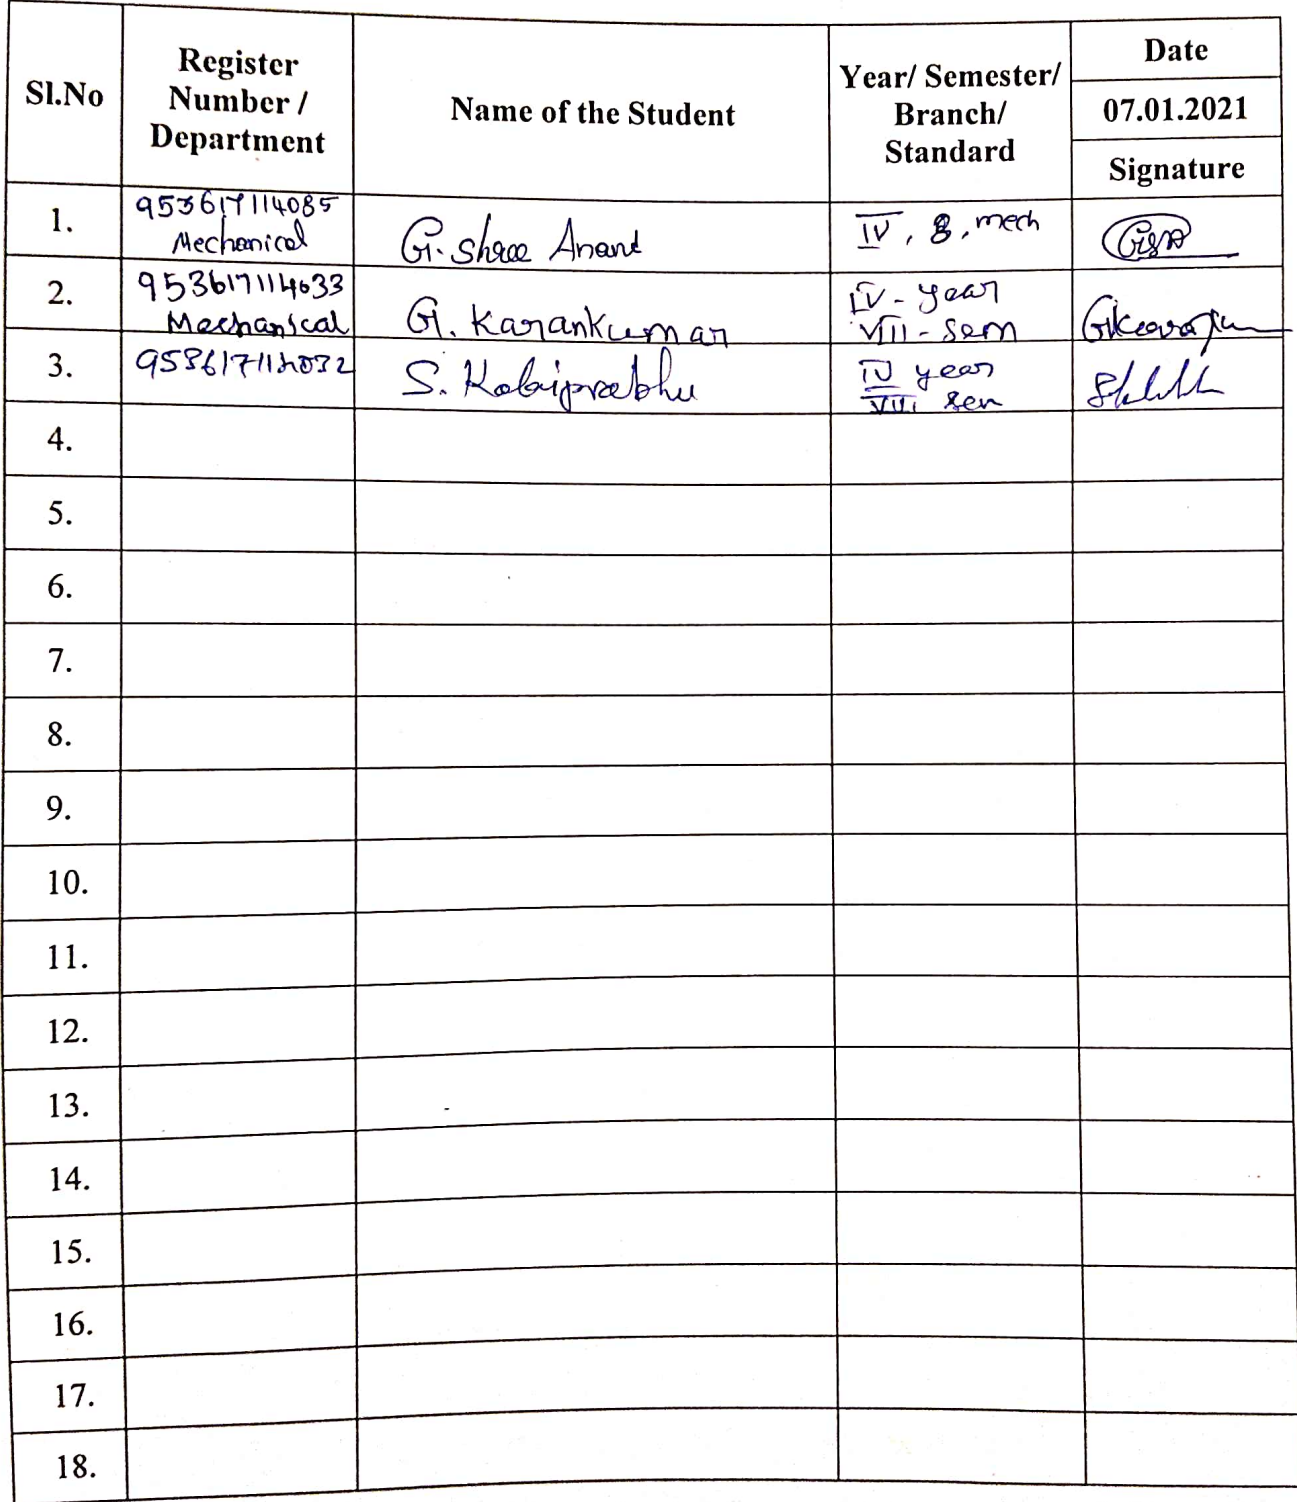 Sl.No
Register
Number /
Department
Name of the Student
Year/ Semester/
Branch/
Standard
Date
07.01.2021
Signature
1.
953617114085
Mechanical
G. Shree Anand
IV, 8, mech
2.
953617114033
Mechanical
G. Karankumar
IV - year
VIII - sem
3.
953617114032
S. Kabiprabhu
IV year
VIII sem
4.
5.
6.
7.
8.
9.
10.
11.
12.
13.
14.
15.
16.
17.
18.